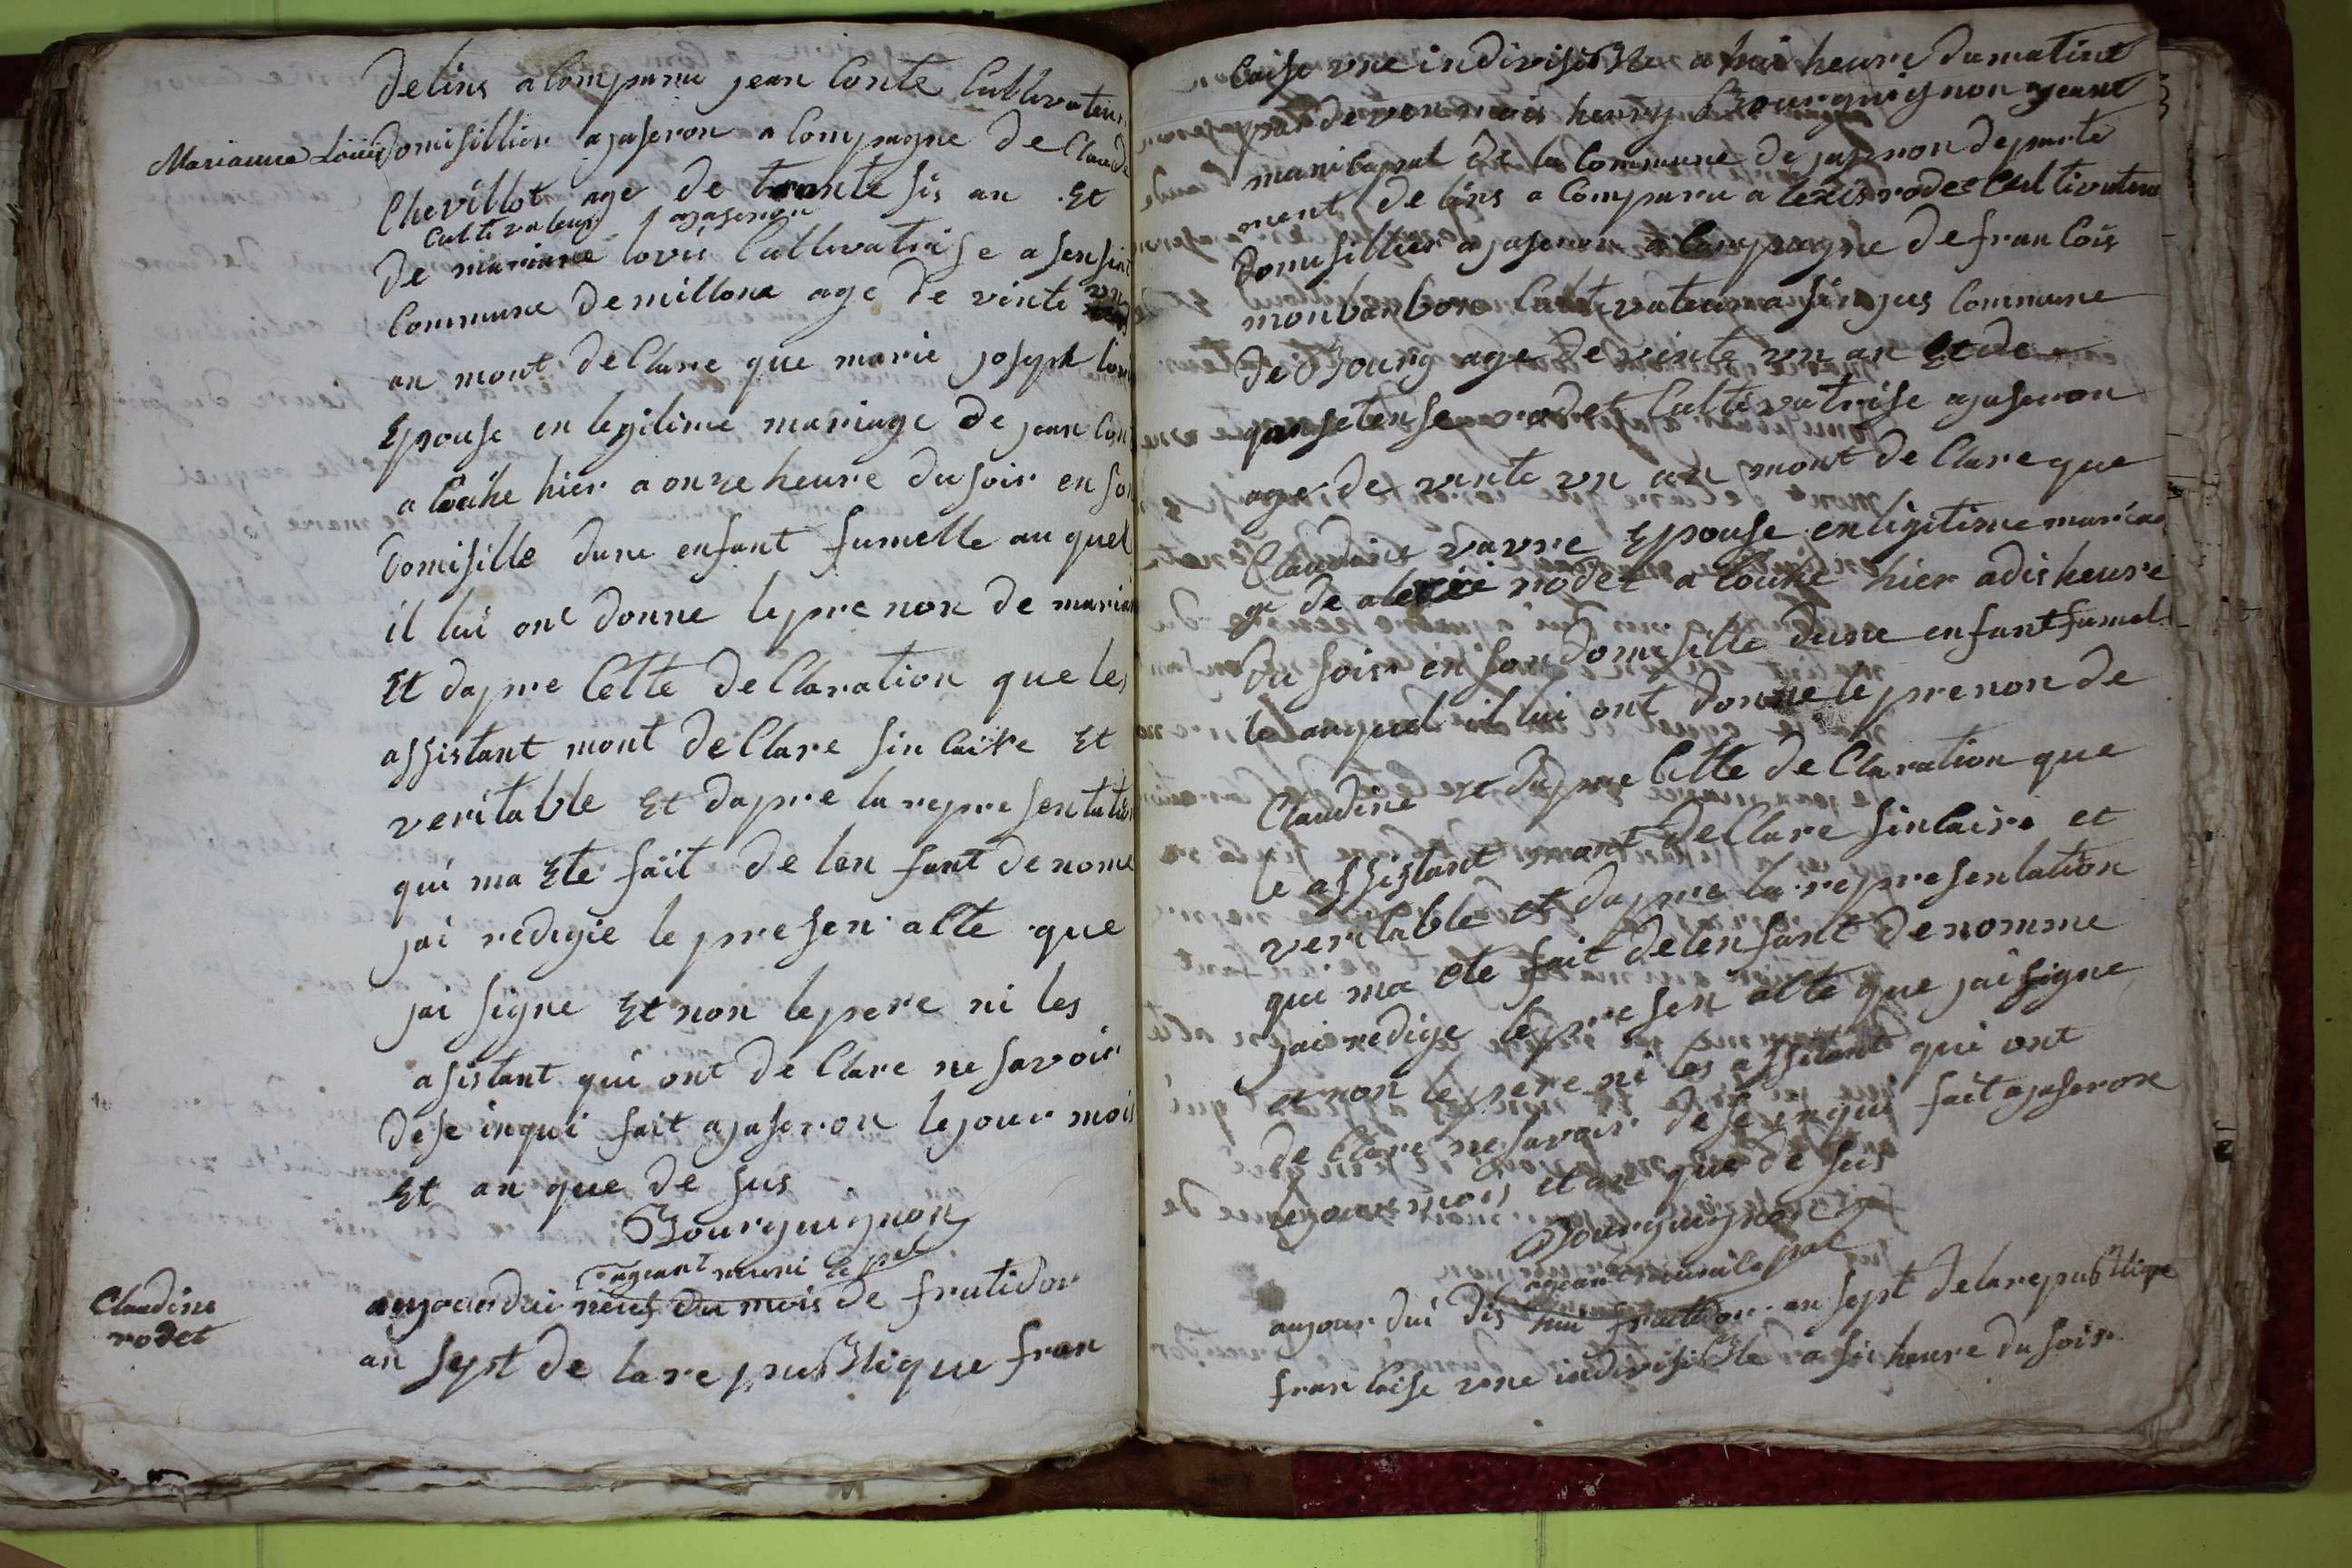 delins a Comparu jean Conte Cultivateur
Marianne Louis
domisillier a jaseron a Compagne de Claude
Chevillot age de trante sis an Et
Cultivateur a jaseron
de mariane lovis Cultivatrise a sensiat
Commune demillona age de vinte un
an mont de Clare que marie joseph lovis
Epouse en legitime mariage de jean Cont
a Couche hier a onze heure du soir en son
domisille dune enfant fumelle au quel
il lui ont donne le prenon de marian
Et dapre Cette de Claration que les
assistant mont de Clare sin Caire Et
veritable Et dapre la representation
qui ma Ete fait de len fant de nome
jai redigie le presen alte que
jai signe Et non le pere ni les
asistant qui ont de Clare ne savoir
dese inqui fait a jaseron le jour mois
Et an que de sus
Bourguignon
ageant muni Ce pal
Claudine
rodet
aujourdui neuf du mois de frutidor
an sept de la republique fran
Caise une indivisible a hui heure du matint
par devon mois henry Bourguignon ageant
manicapal de la Commune de jaseron de parte
ment de lins a Comparu a lexis rodet Cultivateur
domisillier a jaseron a Compagne de fran Cois
monbarbon Cultivateur a
de Bourg age de vinte un an Et de
rodet Cultivatrise a jaseron
age de vinte un an mont de Clare que
Claudine vavre Epouse en ligitime maria
ge de alexi rodet a Couche hier a dis heure
du soir en son domisille dune enfant fumel
le auquel il lui ont donne le prenon de
Claudine et dapre Cette de Claration que
le assistant mont de Clare sin Caire et
veritable et dapre la representation
qui ma ete fait de len fant de nomme
jai redige le presen alte que jai signe
et non le pere ni les assitant qui ont
de Clare ne savoir de se inqui fait a jaseron
le jour mois et an que de sus
Bourguignon
ageant muni Ce pal
aujour dui dis hui frutidor an sept de la republique
fran Caise une indivisible a sis heure du soir